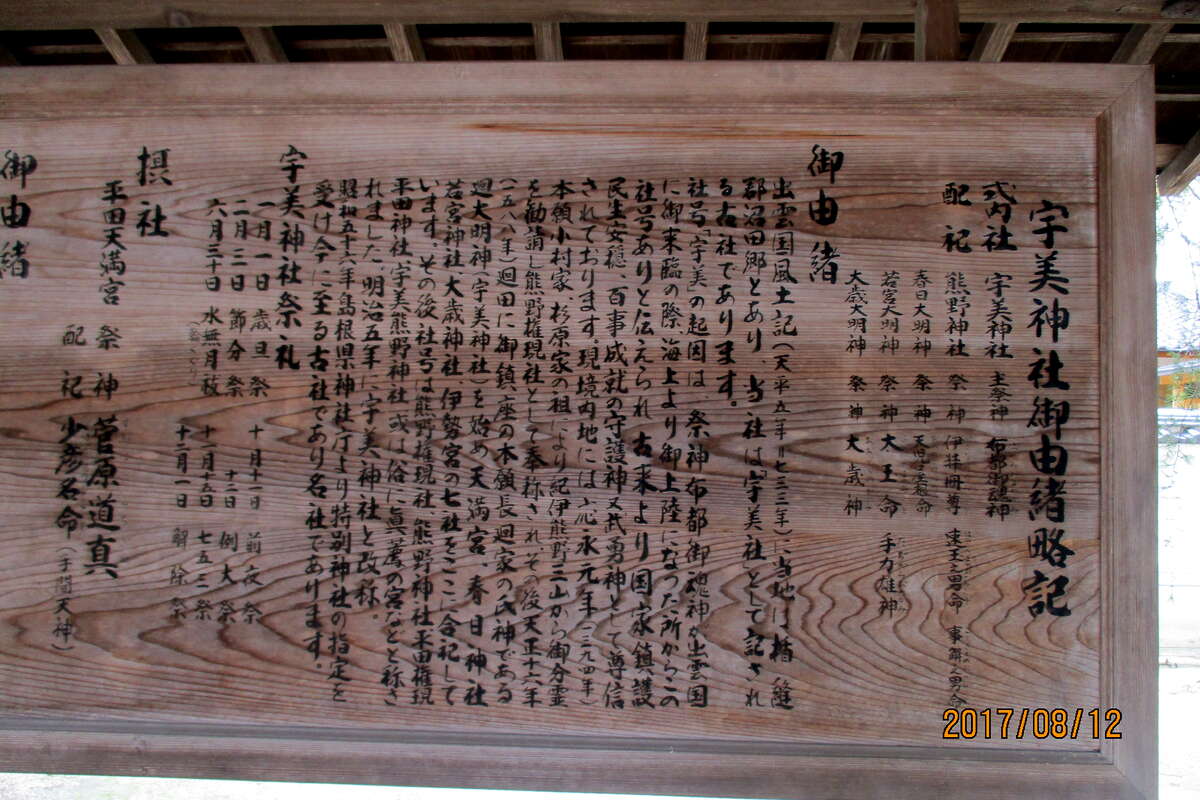 宇美神社御由緒略記
式内社 宇美神社 主祭神 布都御魂神
配祀 熊野神社 祭神 伊弉冊尊 速玉之男命 事解之男命
春日大明神 祭神 天児屋根命
若宮大明神 祭神 太玉命 手力雄神
大歳大明神 祭神 大歳神
御由緒
出雲国風土記(天平五年=七三三年)に当地は楯縫
郡沼田郷とあり、当社は「宇美社」として記され
る古社であります。
社号「宇美」の起因は、祭神布都御魂神が出雲国
に御来臨の際、海上より御上陸になった所からこの
社号ありと伝えられ、古来より国家鎮護
民生安穏、百事成就の守護神又武勇神として尊信
されております。現境内地には応永元年(一三九四年)
本領小村家、杉原家の祖により紀伊熊野三山から御分霊
を勧請し熊野権現社として奉称され、その後天正十六年
(一五八八年)廻田に御鎮座の本領長廻家の氏神である
廻大明神(宇美神社)を始め天満宮、春日神社
若宮神社、大歳神社、伊勢宮の七社をここに合祀して
います。その後、社号は熊野権現社、熊野神社、平田権現
平田神社、宇美熊野神社、或は俗に眞薦の宮などと称さ
れました。明治五年に宇美神社と改称。
昭和五十二年島根県神社庁より特別神社の指定を
受け今に至る古社であり名社であります。
宇美神社祭礼
一月一日 歳旦祭 十月十二日 前夜祭
二月三日 節分祭 十三日 例大祭
六月三十日 水無月祓 十一月十五日 七五三祭
十二月一日 解除祭
摂社
平田天満宮 祭神 菅原道真
配祀 少彦名命(手間天神)
御由緒
2017/08/12